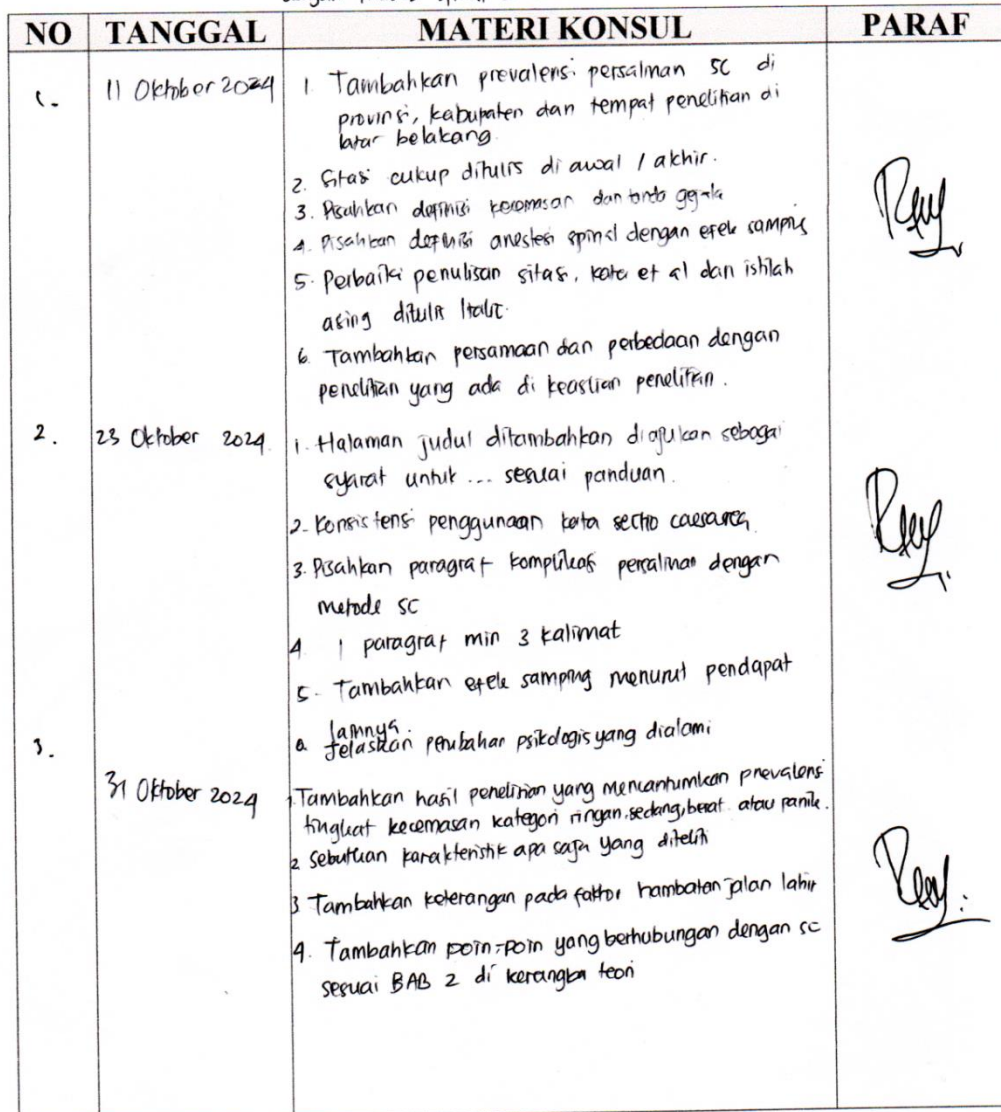 NO TANGGAL MATERI KONSUL PARAF
1. 11 Oktober 2024 1. Tambahkan prevalensi persalinan SC di
provinsi, kabupaten dan tempat penelitian di
latar belakang.
2. Sitasi cukup ditulis di awal / akhir.
3. Pisahkan definisi kecemasan dan tanda gejala
4. Pisahkan definisi anestesi spinal dengan efek samping
5. Perbaiki penulisan sitasi, kata et al dan istilah
asing ditulis Italic.
6. Tambahkan persamaan dan perbedaan dengan
penelitian yang ada di keaslian penelitian.
2. 23 Oktober 2024 1. Halaman judul ditambahkan diajukan sebagai
syarat untuk ... sesuai panduan.
2. Konsistensi penggunaan kata sectio caesarea.
3. Pisahkan paragraf komplikasi persalinan dengan
metode SC
4 1 paragraf min 3 kalimat
5. Tambahkan efek samping menurut pendapat
lainnya.
3. 6. Jelaskan perubahan psikologis yang dialami
31 Oktober 2024 1. Tambahkan hasil penelitian yang mencantumkan prevalensi
tingkat kecemasan kategori ringan, sedang, berat atau panik.
2 Sebutkan karakteristik apa saja yang diteliti
3 Tambahkan keterangan pada faktor hambatan jalan lahir
4. Tambahkan poin-poin yang berhubungan dengan SC
sesuai BAB 2 di kerangka teori